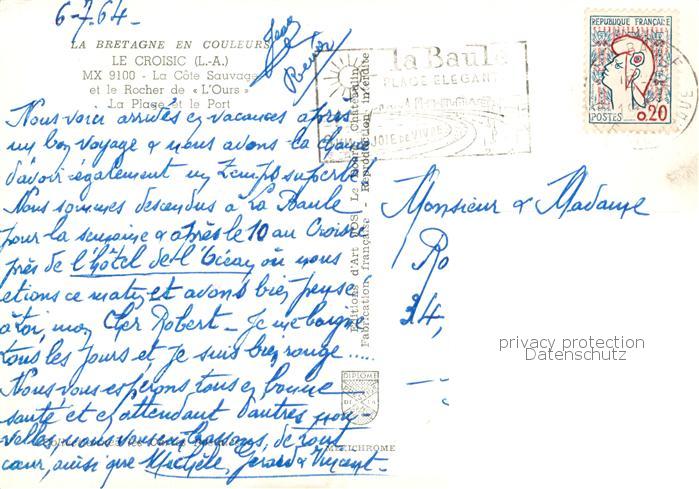 6-7.64_
LA BRETAGNE EN COULEURS
LE CROISIC (L.-A.)
MX 9100 - La Côte Sauvage
et le Rocher de « L'Ours »
La Plage et le Port
Nous voici arrivés en vacances après
un bon voyage & nous avons la chance
d'avoir également un temps superbe!
Nous sommes descendus à La Baule
pour la semaine & après le 10 au Croisic
près de l'hôtel de l'Océan où nous
etions ce matin et avons bien pensé
à toi, mon Cher Robert_ Je me baigne
tous les jours et je suis bien rouge.....
Nous vous espérons tous en bonne
santé et en attendant d'autres nou-
velles, nous vous embrassons, de tout
cœur, ainsi que Michèle, Gérard & Vincent_
Jean
la Baule
PLAGE ELEGANTE
JOIE DE VIVRE
REPUBLIQUE FRANÇAISE
POSTES 0,20
Editions d'Art JOS Le Doaré, Châteaulin
Fabrication française - Reproduction interdite
Monsieur & Madame
Ro
34,
privacy protection
Datenschutz
DIPLOME
MEXICHROME